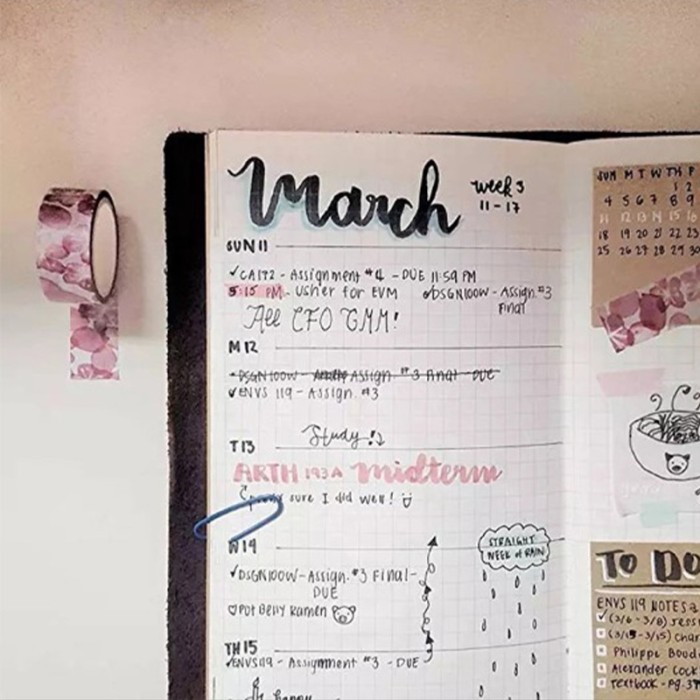 March
week 3
11-17
SUN 11
✓CA172 - Assignment #4 - DUE 11:59 PM
5:15 PM - Usher for EVM
DSGN100W - Assign. #3
Final
All CFO GMM!
M 12
DSGN100W - Assign #3 Final - DUE
✓ENVS 119 - Assign. #3
Study!
T 13
ARTH 193A midterm
sure I did well!
W 14
✓DSGN100W - Assign. #3 Final -
DUE
♡Pot Belly Ramen
STRAIGHT
WEEK of RAIN
TH 15
✓ENVS119 - Assignment #3 - DUE
happy
SUN M T W TH F
1 2
4 5 6 7 8 9
11 12 13 14 15 16
18 19 20 21 22 23
25 26 27 28 29 30
TO DO
ENVS 119 NOTES
(3/6 - 3/8)
(3/13 - 3/15)
Philippe
Alexander
Textbook - pg. 37